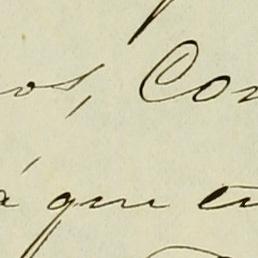 os, Con
á que en